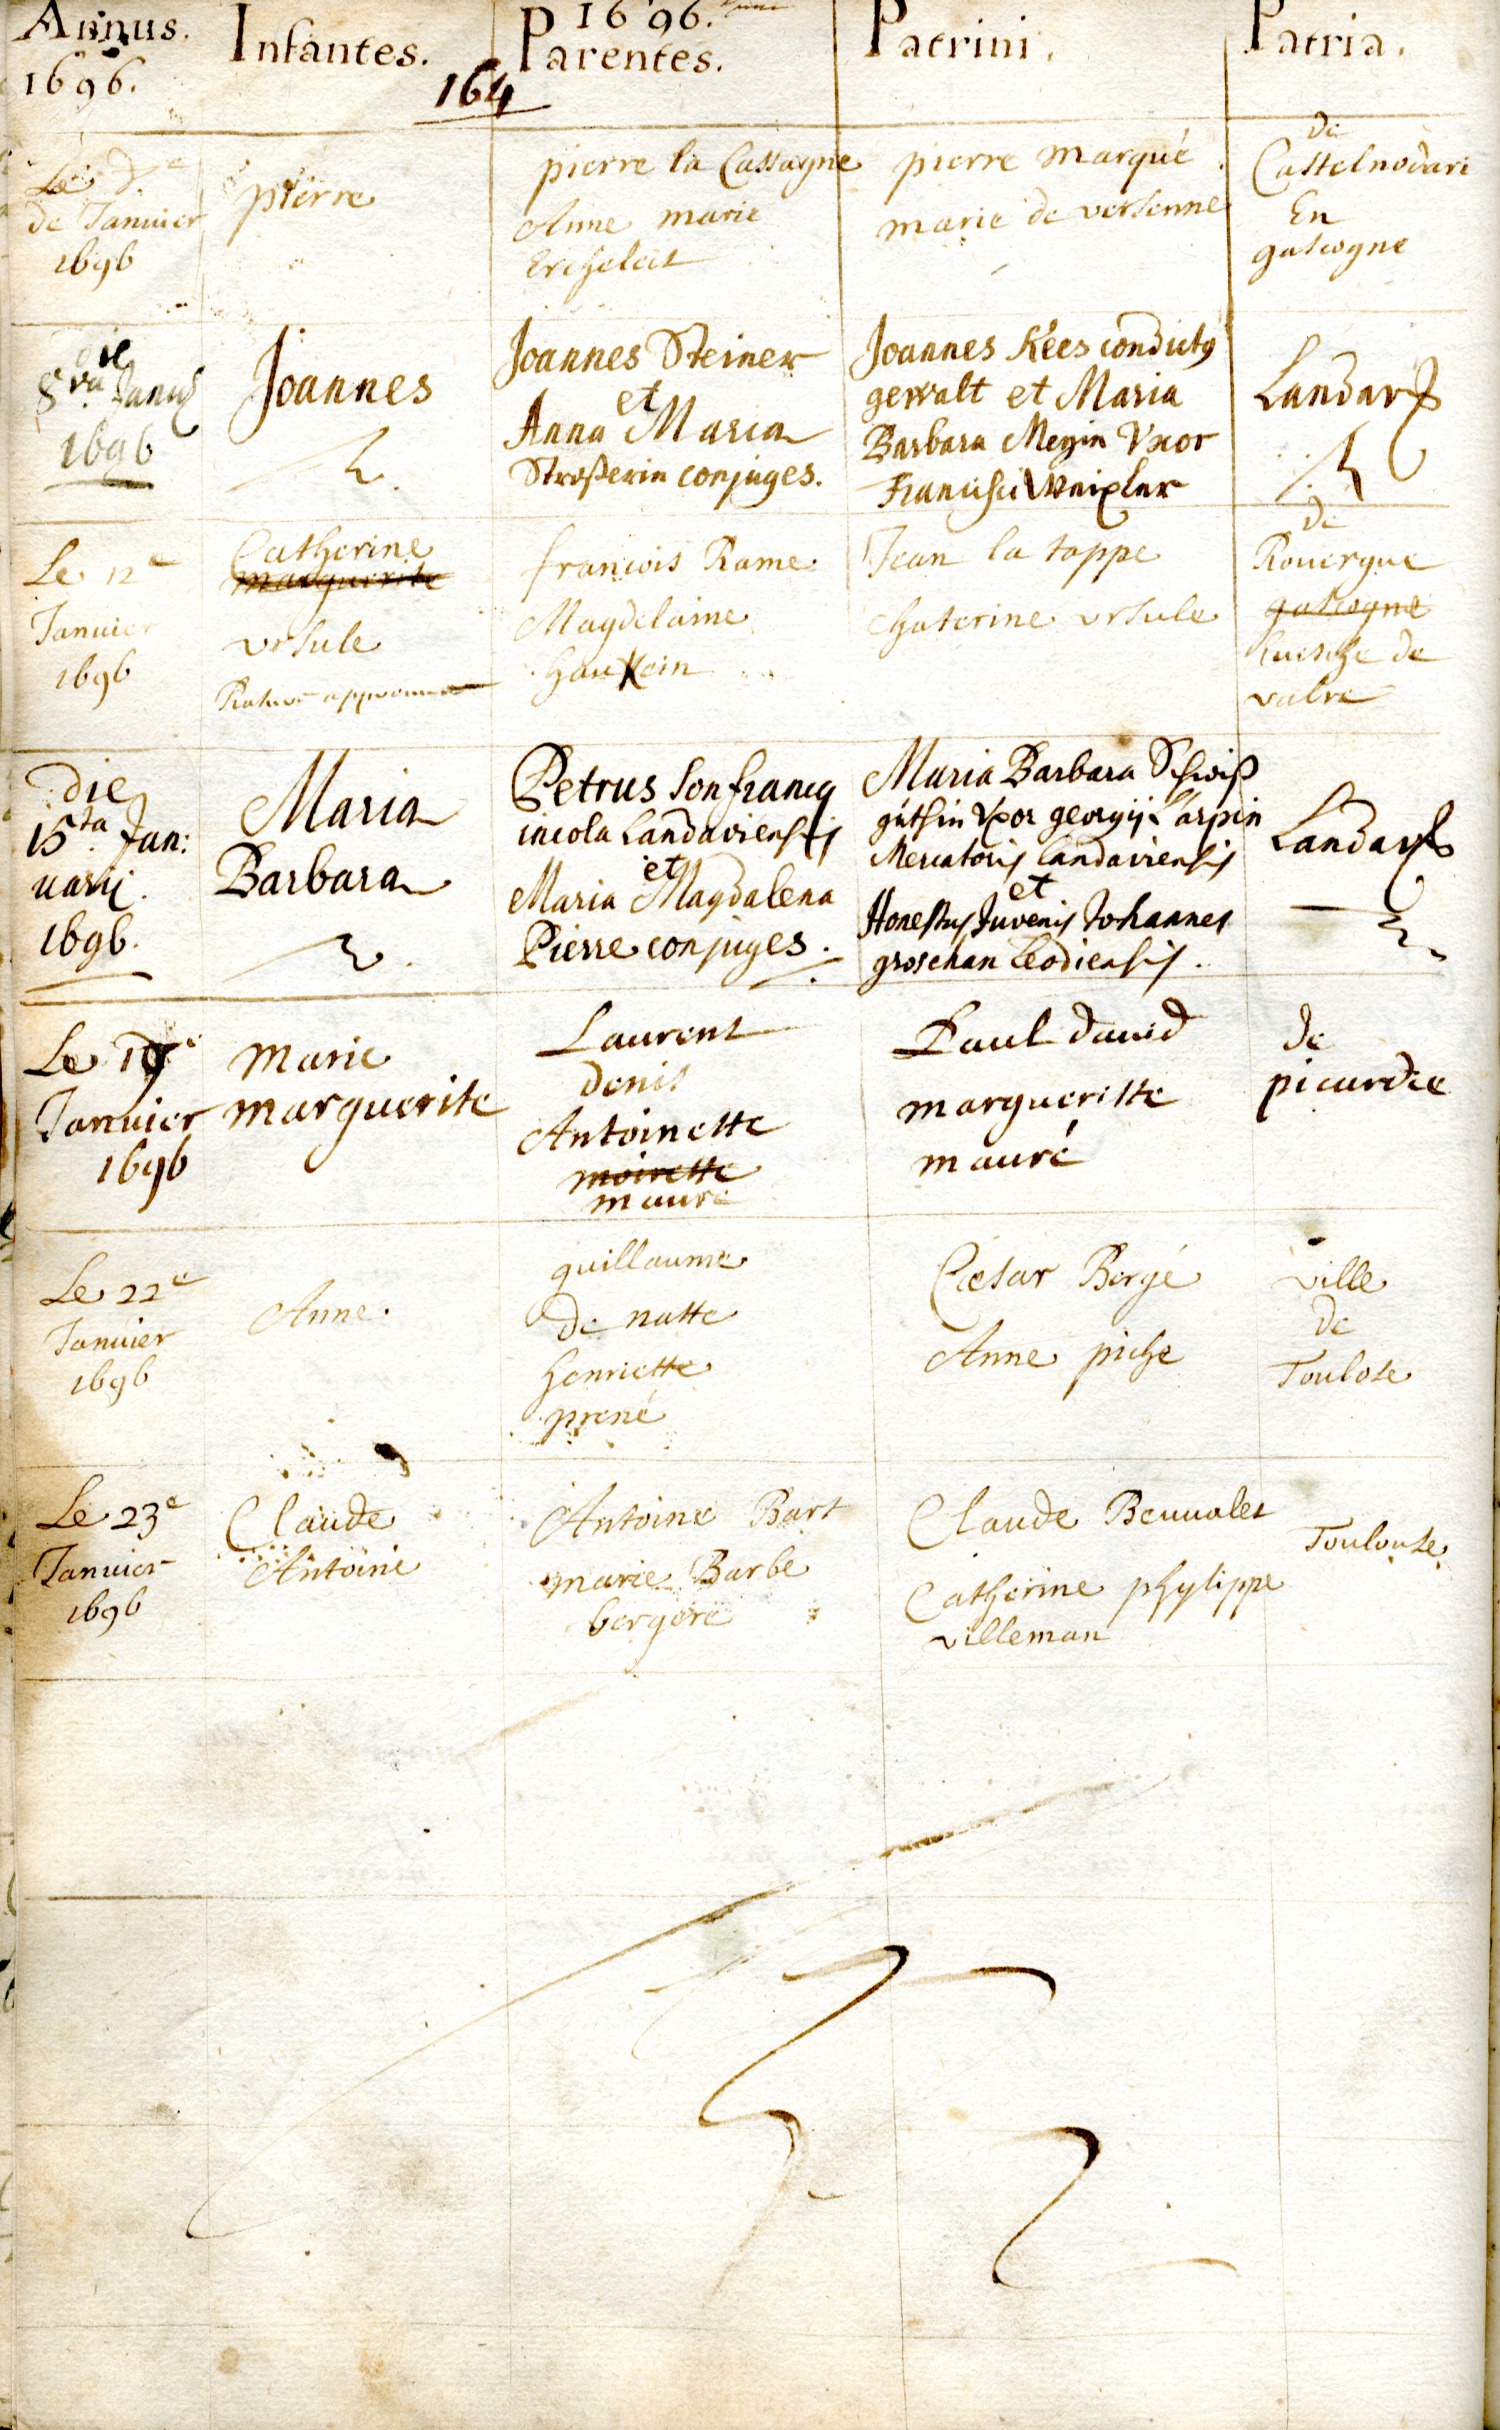 Annus.
1696.
Infantes.
164
1696.
Parentes.
Patrini.
Patria.
Le
de Januier
1696
pierre
pierre la Cassagne
Anne marie
Erchelett
pierre marqué
marie de versenne
de
Castelnodari
En
gascogne
die
8va Januÿ
1696
Joannes
Joannes Steiner
et
Anna Maria
Stroßerin conjuges.
Joannes Kées conductus
gewalt et Maria
Barbara Meyin Vxor
Francisci Weixler
Landavj
Le 12e
Januier
1696
Catherine
marguerite
vrsule
francois Rame
Magdelaine
Jean la toppe
Chaterine vrsule
de
Rouergue
gascogne
de
vabre
die
15ta Jan:
uarij.
1696.
Maria
Barbara
Petrus Sonfrancq
incola Landaviensis
et
Maria Magdalena
Pierre conjuges.
Maria Barbara Schwiß
guthin Vxor georgij Larpin
Mercatoris Landaviensis
et
Honestus Juvenis Johannes
groschan Leodiensis.
Landavj
Le
Januier
1696
marie
marguerite
Laurent
denis
Antoinette
moirette
mauré
Paul dauid
margueritte
mauré
de
picardie
Le 22e
Januier
1696
Anne.
guillaume
de natte
henriette
prené
Cæsar Bergé
Anne piche
ville
de
Toulose
Le 23e
Januier
1696
Claude
Antoine
Antoine Bart
marie Barbe
bergere
Claude Beuualet
Catherine phylippe
villeman
Toulouse